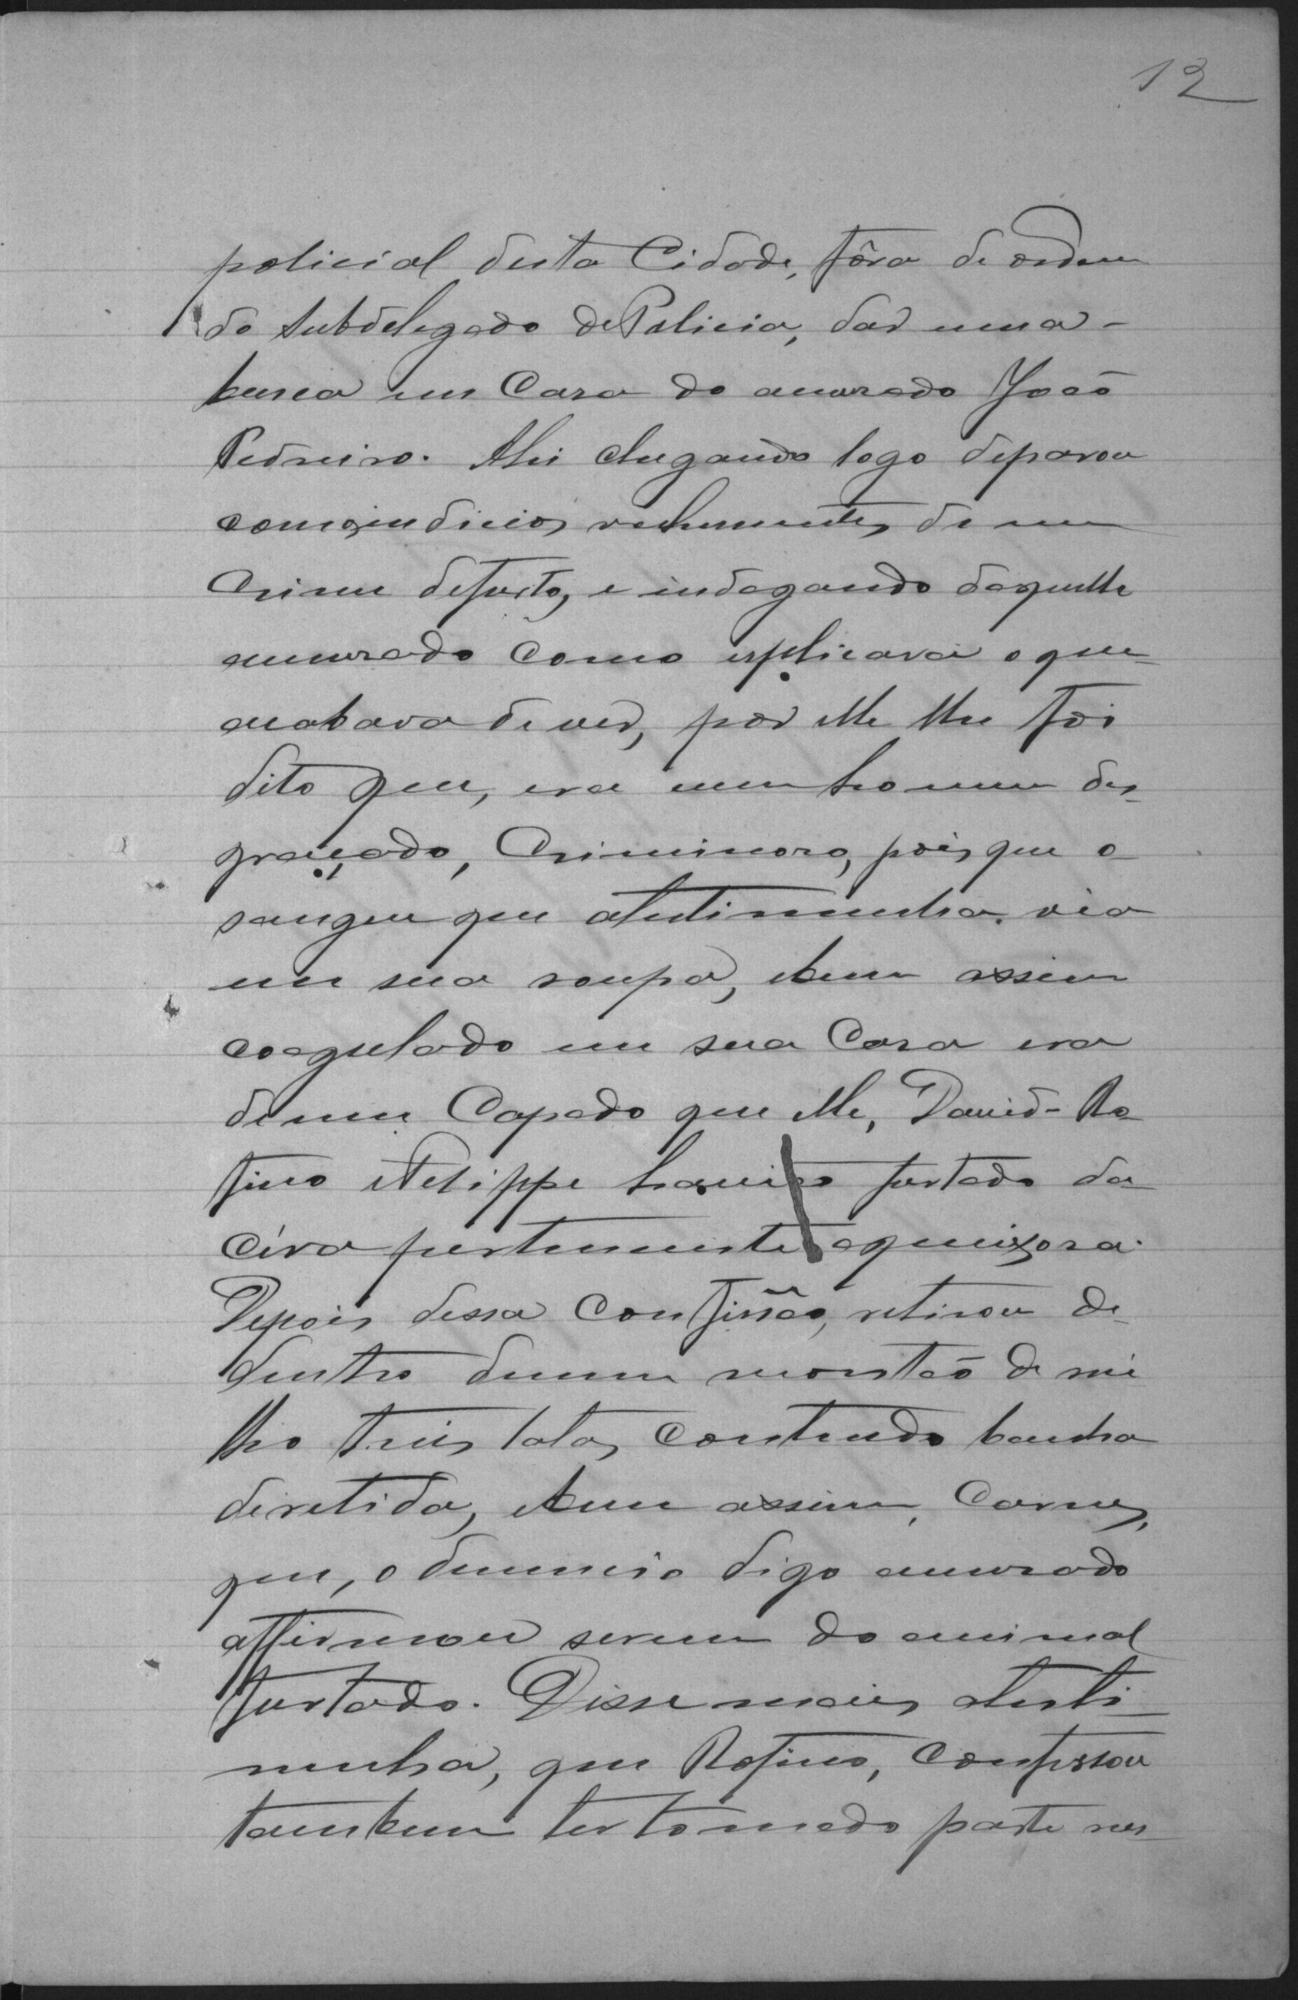 12
policial desta Cidade, fôra de ordem
do Subdelegado de Policia, dar uma
busca em Casa do accusado João
Pedreiro. Ahi chegando logo deparou
com indicios vehementes de um
Crime defurto, e indagando daquelle
accusado como esplicava o que
acabava de ver, por elle lhe foi
dito que, era um homem des-
graçado, Criminoso, pois que o
sangue que atestimunha via
em sua roupa, e bem assim
coagulado em sua Casa era
de um Capado que elle, David Ro-
fino e Felippe havião furtado da
Céva pertencente aqueixosa.
Depois dessa Confissão, retirou de
dentro de um montão de mi
lho tres latas, contendo banha
deretida, e bem assim, Carnes,
que, o denuncia digo accusado
affirmou serem do animal
furtado. Disse mais atesti-
munha, que Rofino, confessou
tambem ter tomado parte nes-